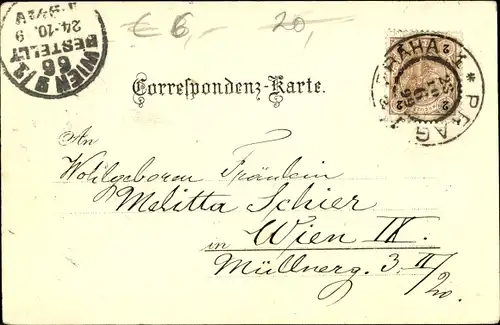 € 6,- 20,
WIEN 9/1
66
BESTELLT
24.10.9
PRAHA
PRAG
2
2
Correspondenz-Karte.
An
Wohlgeboren Fräulein
Melitta Schier
in Wien IX.
Müllnerg. 3. II/20.